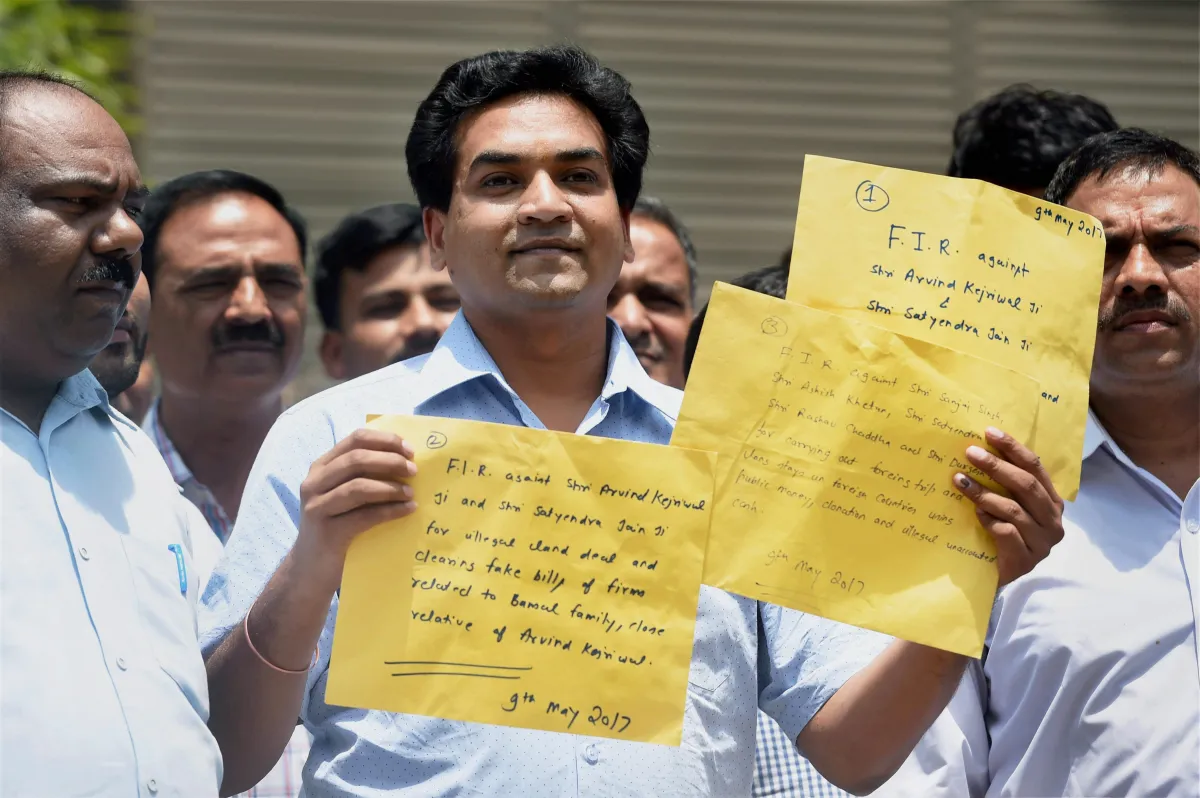 ①
9th May 2017
F.I.R. against
Shri Arvind Kejriwal Ji
&
Shri Satyendra Jain Ji
and
②
F.I.R. against Shri Arvind Kejriwal
Ji and Shri Satyendra Jain Ji
for illegal land deal and
clearing fake bills of firms
related to Bansal family, close
relative of Arvind Kejriwal.
9th May 2017
③
F.I.R. against Shri Sanjay Singh,
Shri Ashish Khetan, Shri Satyendra
Shri Raghav Chaddha and Shri Durgesh
for carrying out foreins trip and
stays in foreign Countries using
Public money, donation and illegal unaccounted
cash.
9th May 2017